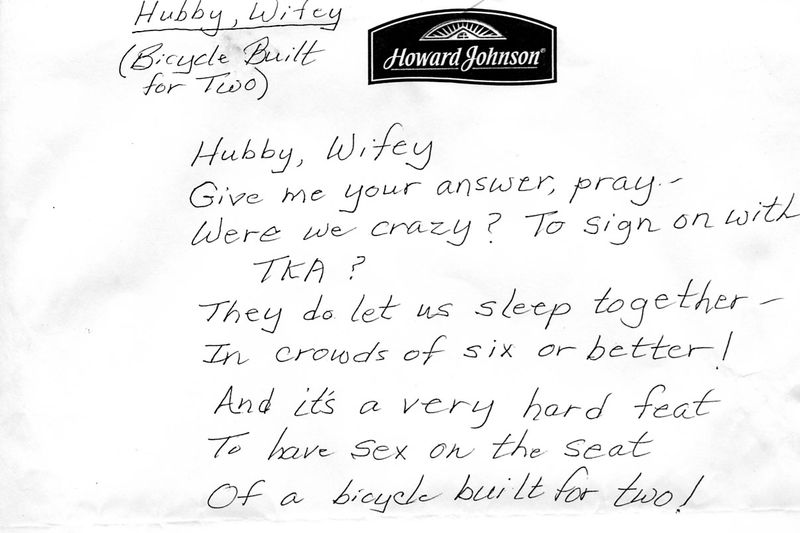 Hubby, Wifey
(Bicycle Built
for Two)
Howard Johnson®
Hubby, Wifey
Give me your answer, pray -
Were we crazy? To sign on with
TKA?
They do let us sleep together -
In crowds of six or better!
And it's a very hard feat
To have sex on the seat
Of a bicycle built for two!